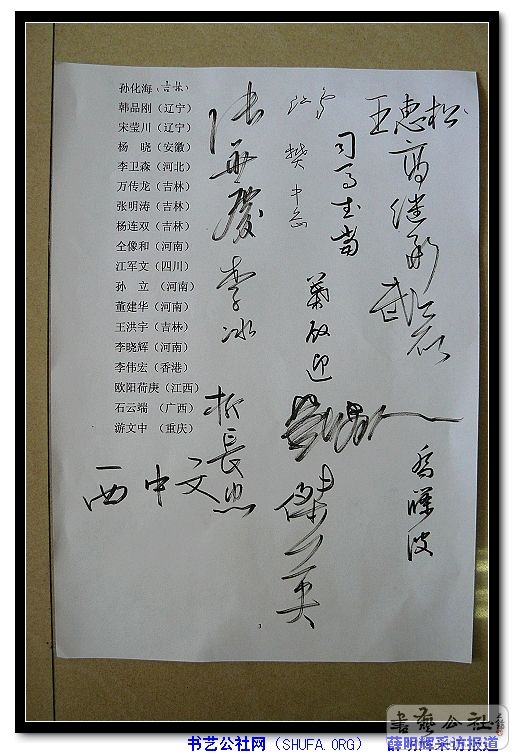 孙化海（吉林）
韩品刚（辽宁）
宋莹川（辽宁）
杨　晓（安徽）
李卫森（河北）
万传龙（吉林）
张明涛（吉林）
杨连双（吉林）
仝像和（河南）
江军文（四川）
孙　立（河南）
董建华（河南）
王洪宇（吉林）
李晓辉（河南）
李伟宏（香港）
欧阳荷庚（江西）
石云端　（广西）
游文中　（重庆）
西中文
李冰
長忠
樊中岳
司马武当
王惠松
高继承
3
书艺公社
书艺公社网（SHUFA.ORG）　薛明辉采访报道